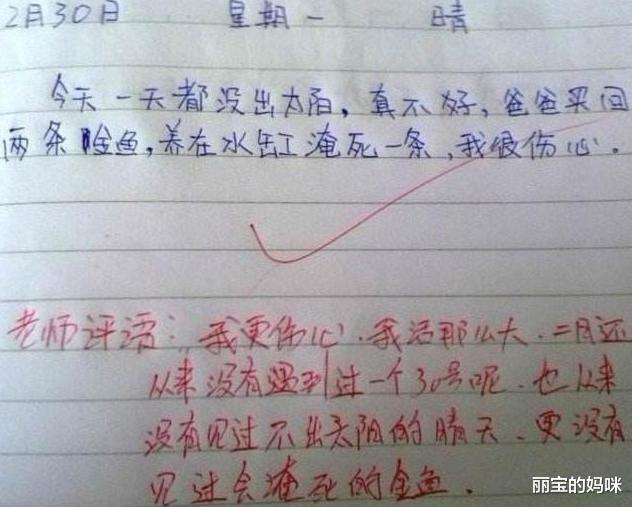 2月30日 星期一 晴
今天一天都没出太阳，真不好，爸爸买回
两条金鱼，养在水缸淹死一条，我很伤心.
老师评语：我更伤心.我活那么大.二月还
从来没有遇到过一个30号呢.也从来
没有见过不出太阳的晴天.更没有
见过会淹死的金鱼.
丽宝的妈咪